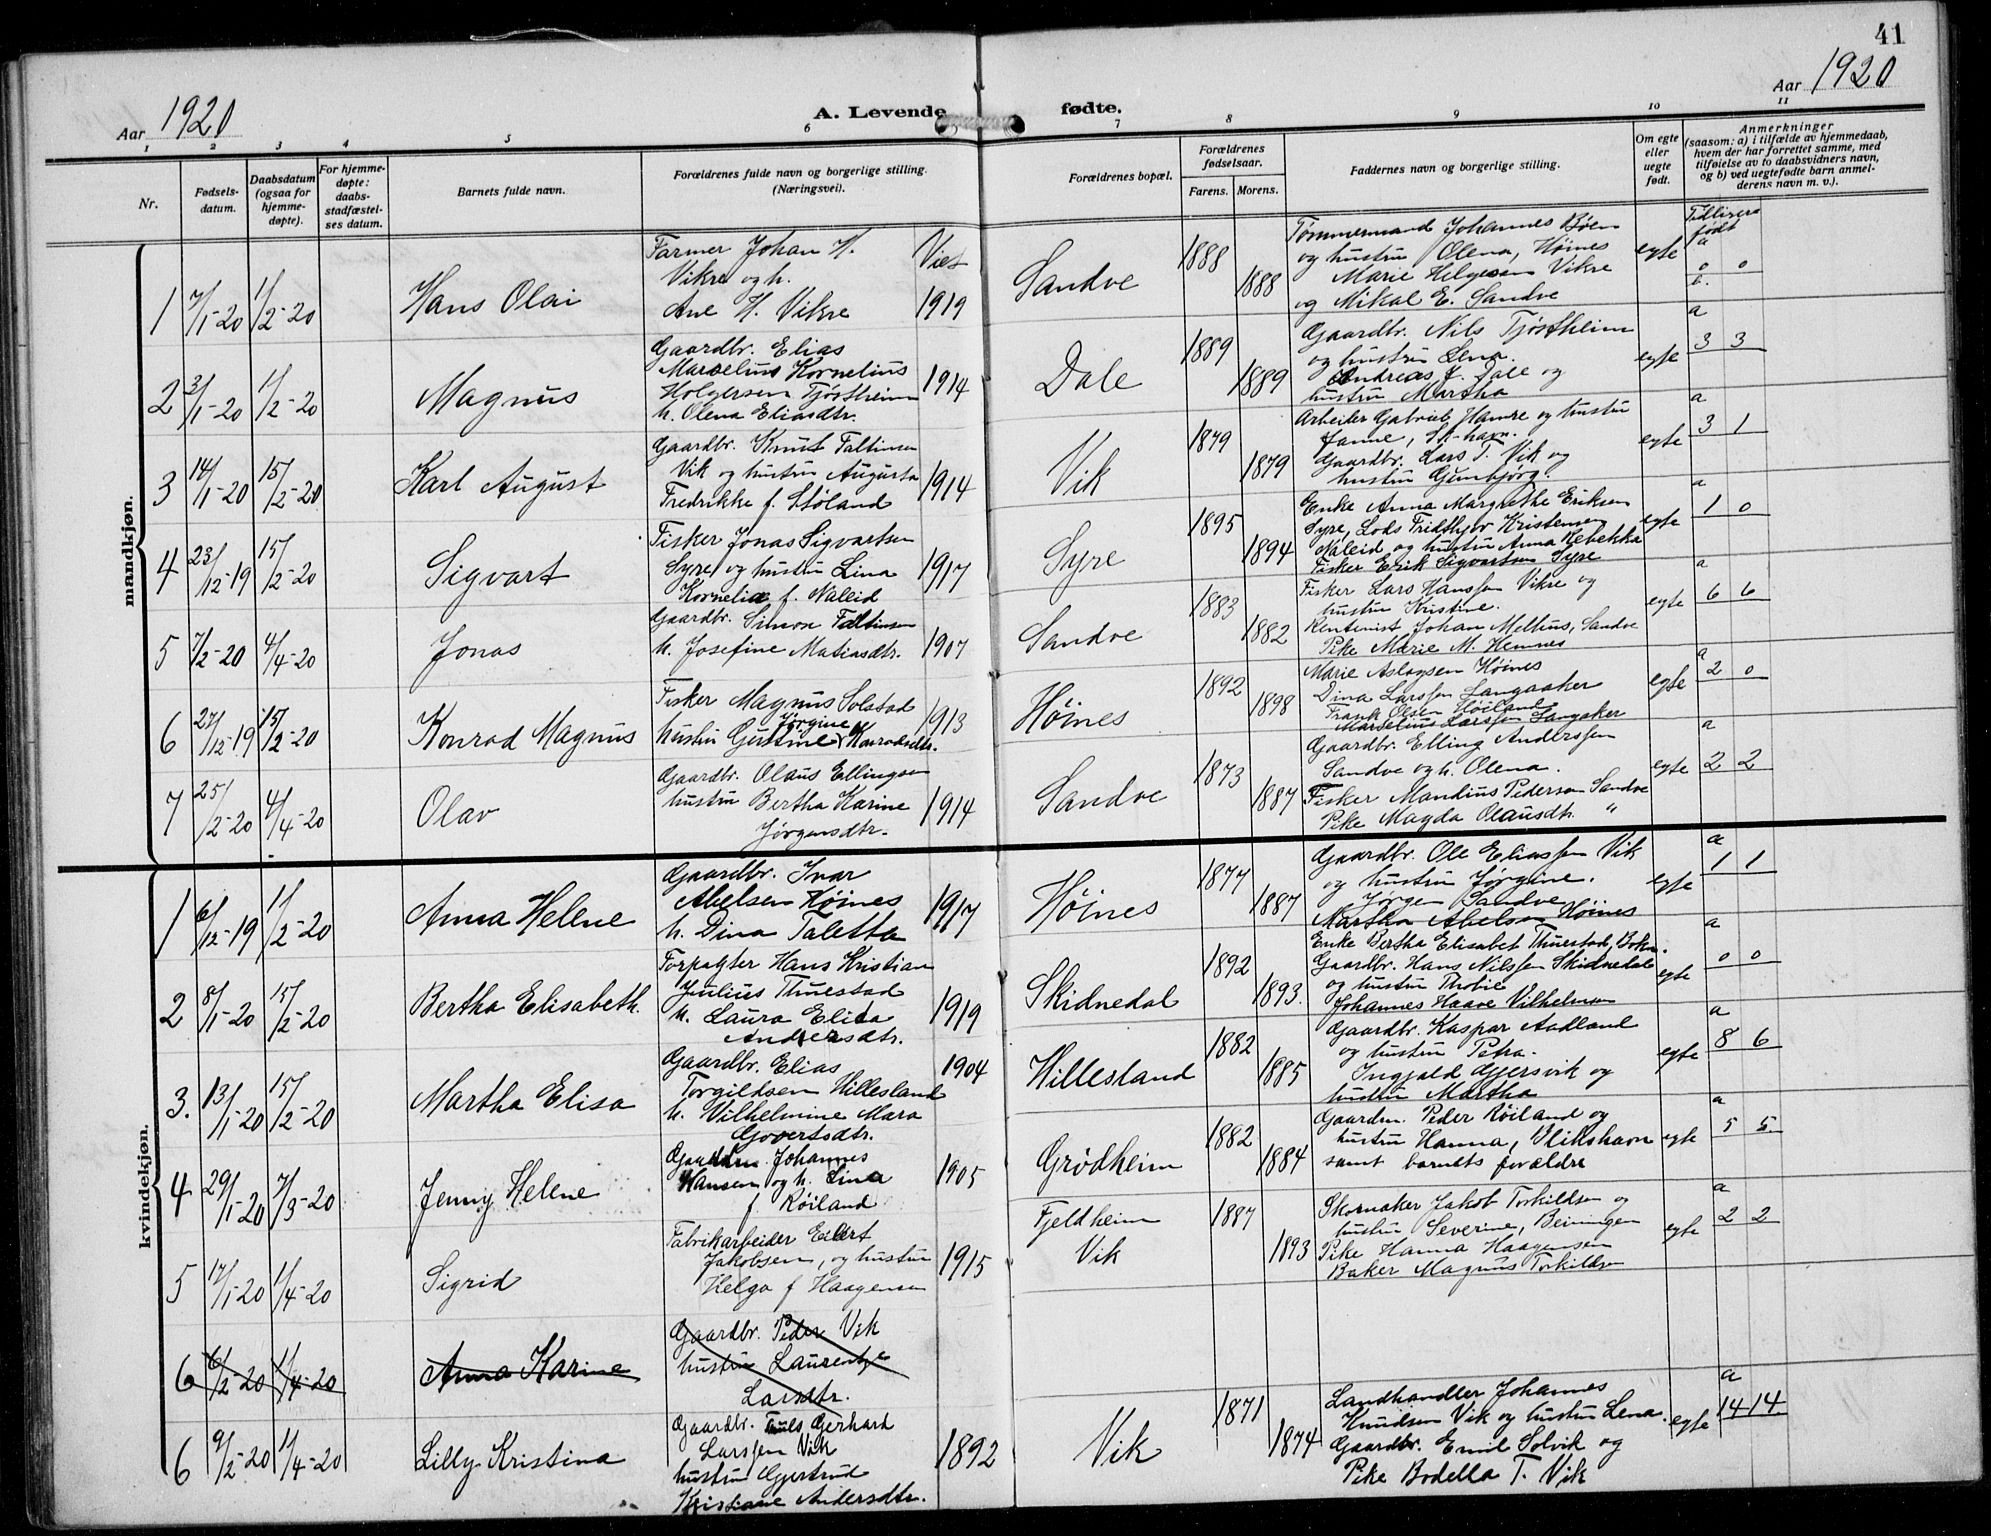 41
Aar 1920
A. Levende fødte.
Aar 1920
1 2 3 4 5 6 7 8 9 10 11
Nr.
Fødsels-
datum.
Daabsdatum
(ogsaa for
hjemme-
døpte).
For hjemme-
døpte:
daabs-
stadfæstel-
ses datum.
Barnets fulde navn.
Forældrenes fulde navn og borgerlige stilling.
(Næringsvei).
Forældrenes bopæl.
Forældrenes
fødselsaar.
Farens. Morens.
Faddernes navn og borgerlige stilling.
Om egte
eller
uegte
født.
Anmerkninger
(saasom: a) i tilfælde av hjemmedaab,
hvem der har forrettet samme, med
tilføielse av to daabsvidners navn,
og b) ved uegtefødte barn anmel-
derens navn m. v.).
mandkjøn.
1 7/1-20 1/2-20 Hans Olai
Farmer Johan H.
Vikre og h.
Ane H. Vikre
Viet
1919
Sandve 1888 1888
Tømmermand Johannes Bøen
og hustru Olena, Høines
Marie Helgesen Vikre
og Mikal E. Sandve
egte
Tidligere
født
a
0 0
b.
2 3/1-20 1/2-20 Magnus
Gaardbr. Elias
Marselius Kornelius
Holgersen Tjøstheim
h. Olena Eliasdtr.
1914
Dale 1889 1889
Gaardbr. Nils Tjøstheim
og hustru Lena.
Andreas J. Dale og
hustru Martha
egte
a
3 3
3 14/1-20 15/2-20 Karl August
Gaardbr. Knut Faltinsen
Vik og hustru Augusta
Fredrikke f. Støland
1914
Vik 1879 1879
Arbeider Gabriel Hamre og hustru
Janne,
Gaardbr. Lars T. Vik og
hustru Gunbjørg.
egte
a
3 1
4 23/12-19 15/2-20 Sigvart
Fisker Jonas Sigvartsen
Syre og hustru Lina
Kornelia f. Naleid
1917
Syre 1895 1894
Enke Anna Margrethe Eriksen
Syre, Lods Fridthjov Kristensen
Naleid og hustru Anna Rebekka
Fisker Erik Sigvartsen Syre
egte
a
1 0
5 7/2-20 4/4-20 Jonas
Gaardbr. Simon Faltinsen
h. Josefine Matiasdtr.
1907
Sandve 1883 1882
Fisker Lars Hanssen Vikre og
hustru Kristine.
Rentenist Johan Melhus, Sandve
Pike Marie M. Hemnes
egte
a
6 6
6 27/12-19 15/2-20 Konrad Magnus
Fisker Magnus Solstad
Jørgine
hustru Gurine Konradsdtr.
1913
Høines 1892 1898
Marie Aslagsen Høines
Dina Larssen Langaaker
Frank Olsen Høiland
Marselius Larssen Langaker
egte
a
2 0
7 25/2-20 4/4-20 Olav
Gaardbr. Olaus Ellingsen
hustru Bertha Karine
Jørgensdtr.
1914
Sandve 1873 1887
Gaardbr. Elling Anderssen
Sandve og h. Olena.
Fisker Mandius Pedersen Sandve
Pike Magda Olausdtr. "
egte
a
2 2
kvindekjøn.
1 6/12-19 1/2-20 Anna Helene
Gaardbr. Ivar
Abelsen Høines
h. Dina Taletta
1917
Høines 1877 1887
Gaardbr. Ole Eliassen Vik
og hustru Jørgine.
Jørgen Sandve
Martha Abelsen Høines
egte
a
1 1
2 8/1-20 15/2-20 Bertha Elisabeth.
Forpagter Hans Kristian
Julius Thuestad
h. Laura Elida
Andersdtr.
1919
Skidnedal 1892 1893.
Enke Bertha Elisabet Thuestad, Bokn.
Gaardbr. Hans Nilssen Skidnedal
og hustru Thobie
Johannes Haave Vilhelmsen
egte
a
0 0
3. 13/1-20 15/2-20 Martha Elisa
Gaardbr. Elias
Torgildsen Hillesland
h. Vilhelmine Mara
Govertsdtr.
1904
Hillesland 1882 1885
Gaardbr. Kaspar Aadland
og hustru Petra.
Ingjald Gjersvik og
hustru Martha
egte
a
8 6
4 29/1-20 7/3-20 Jenny Helene
Gaardm. Johannes
Hansen og h. Lina
f. Røiland
1905
Grødheim 1882 1884
Gaardm. Peder Røiland og
hustru Hanna, Blikshavn
samt barnets forældre
egte
a
5 5.
5 17/1-20 1/4-20 Sigrid
Fabrikarbeider Eilert
Jakobsen, og hustru
Helga f Haagensen
1915
Fjeldheim
Vik
1887 1893
Skomaker Jakob Torkildsen og
hustru Severine, Beiningen
Pike Hanna Haagensen
Baker Magnus Torkildsen
egte
a
2 2
6 6/2-20 1/4-20 Anna Karine
Gaardbr. Peder Vik
hustru Laurentze
Larsdtr.
6 9/2-20 1/4-20 Lilly Kristina
Gaardbr. Gerhard
Larssen Vik
hustru Gjertrud
Kristiane Andersdtr.
1892
Vik 1871 1874
Landhandler Johannes
Knudsen Vik og hustru Lena.
Gaardbr. Emil Solvik og
Pike Bodella T. Vik
egte
a
14 14